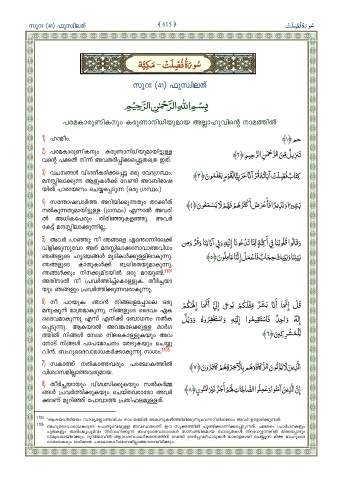 സൂറഃ (41) ഫുസ്സിലത്
﴾ 615 ﴿
سورة فصلت
سُورَةُ فُصِّلَتْ - مَكِّيَّة
സൂറഃ (41) ഫുസ്സിലത്
بِسْمِ اللهِ الرَّحْمٰنِ الرَّحِيْمِ
പരമകാരുണികനും കരുണാനിധിയുമായ അല്ലാഹുവിന്റെ നാമത്തിൽ
1) ഹാമീം.
حم ﴿١﴾
2) പരമകാരുണികനും കരുണാനിധിയുമായിട്ടുള്ള
വന്റെ പക്കൽ നിന്ന് അവതരിപ്പിക്കപ്പെട്ടതത്രെ ഇത്.
تَنزِيلٌ مِّنَ الرَّحْمَٰنِ الرَّحِيمِ ﴿٢﴾
3) വചനങ്ങൾ വിശദീകരിക്കപ്പെട്ട ഒരു വേദഗ്രന്ഥം.
മനസ്സിലാക്കുന്ന ആളുകൾക്ക് വേണ്ടി അറബിഭാഷ
യിൽ പാരായണം ചെയ്യപ്പെടുന്ന (ഒരു ഗ്രന്ഥം.)
كِتَابٌ فُصِّلَتْ آيَاتُهُ قُرْآنًا عَرَبِيًّا لِّقَوْمٍ يَعْلَمُونَ ﴿٣﴾
4) സന്തോഷവാർത്ത അറിയിക്കുന്നതും താക്കീത്
നൽകുന്നതുമായിട്ടുള്ള (ഗ്രന്ഥം) എന്നാൽ അവരി
ൽ അധികപേരും തിരിഞ്ഞുകളഞ്ഞു. അവർ
കേട്ട് മനസ്സിലാക്കുന്നില്ല.
بَشِيرًا وَنَذِيرًا فَأَعْرَضَ أَكْثَرُهُمْ فَهُمْ لَا يَسْمَعُونَ ﴿٤﴾
5) അവർ പറഞ്ഞു: നീ ഞങ്ങളെ എന്തൊന്നിലേക്ക്
വിളിക്കുന്നുവോ അത് മനസ്സിലാക്കാനാവാത്തവിധം
ഞങ്ങളുടെ ഹൃദയങ്ങൾ മൂടികൾക്കുള്ളിലാകുന്നു.
ഞങ്ങളുടെ കാതുകൾക്ക് ബധിരതയുമാകുന്നു.
ഞങ്ങൾക്കും നിനക്കുമിടയിൽ ഒരു മറയുണ്ട്.
അതിനാൽ നീ പ്രവർത്തിച്ച് കൊള്ളുക. തീർച്ചയാ
യും ഞങ്ങളും പ്രവർത്തിക്കുന്നവരാകുന്നു.
وَقَالُوا قُلُوبُنَا فِي أَكِنَّةٍ مِّمَّا تَدْعُونَا إِلَيْهِ وَفِي آذَانِنَا وَقْرٌ وَمِن
بَيْنِنَا وَبَيْنِكَ حِجَابٌ فَاعْمَلْ إِنَّنَا عَامِلُونَ ﴿٥﴾
6) നീ പറയുക: ഞാൻ നിങ്ങളെപ്പോലെ ഒരു
മനുഷ്യൻ മാത്രമാകുന്നു. നിങ്ങളുടെ ദൈവം ഏക
ദൈവമാകുന്നു എന്ന് എനിക്ക് ബോധനം നൽക
പ്പെടുന്നു. ആകയാൽ അവങ്കലേക്കുള്ള മാർഗ
ത്തിൽ നിങ്ങൾ നേരെ നിലകൊള്ളുകയും അവ
നോട് നിങ്ങൾ പാപമോചനം തേടുകയും ചെയ്യു
വിൻ. ബഹുദൈവാരാധകർക്കാകുന്നു നാശം.
قُلْ إِنَّمَا أَنَا بَشَرٌ مِّثْلُكُمْ يُوحَىٰ إِلَيَّ أَنَّمَا إِلَٰهُكُمْ
إِلَٰهٌ وَاحِدٌ فَاسْتَقِيمُوا إِلَيْهِ وَاسْتَغْفِرُوهُ وَوَيْلٌ
لِّلْمُشْرِكِينَ ﴿٦﴾
7) സകാത്ത് നൽകാത്തവരും പരലോകത്തിൽ
വിശ്വാസമില്ലാത്തവരുമായ.
الَّذِينَ لَا يُؤْتُونَ الزَّكَاةَ وَهُم بِالْآخِرَةِ هُمْ كَافِرُونَ ﴿٧﴾
8) തീർച്ചയായും വിശ്വസിക്കുകയും സൽകർമ്മ
ങ്ങൾ പ്രവർത്തിക്കുകയും ചെയ്തവരാരോ അവർ
ക്കാണ് മുറിഞ്ഞ് പോവാത്ത പ്രതിഫലമുള്ളത്.
إِنَّ الَّذِينَ آمَنُوا وَعَمِلُوا الصَّالِحَاتِ لَهُمْ أَجْرٌ غَيْرُ مَمْنُونٍ ﴿٨﴾